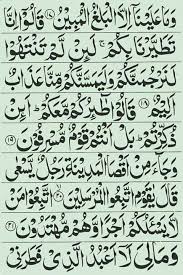 وَمَا عَلَيْنَا إِلَّا الْبَلٰغُ الْمُبِيْنُ ﴿١٧﴾ قَالُوْٓا اِنَّا
تَطَيَّرْنَا بِكُمْ ۚ لَىِٕنْ لَّمْ تَنْتَهُوْا
لَنَرْجُمَنَّكُمْ وَلَيَمَسَّنَّكُمْ مِّنَّا عَذَابٌ
اَلِيْمٌ ﴿١٨﴾ قَالُوْا طَآىِٕرُكُمْ مَّعَكُمْ ؕ اَىِٕنْ
ذُكِّرْتُمْ ؕ بَلْ اَنْتُمْ قَوْمٌ مُّسْرِفُوْنَ ﴿١٩﴾
وَجَآءَ مِنْ اَقْصَا الْمَدِيْنَةِ رَجُلٌ يَّسْعٰى
قَالَ يٰقَوْمِ اتَّبِعُوا الْمُرْسَلِيْنَ ﴿٢٠﴾ اتَّبِعُوْا مَنْ
لَّا يَسْـَٔلُكُمْ اَجْرًا وَّهُمْ مُّهْتَدُوْنَ ﴿٢١﴾
وَمَا لِيَ لَآ اَعْبُدُ الَّذِيْ فَطَرَنِيْ